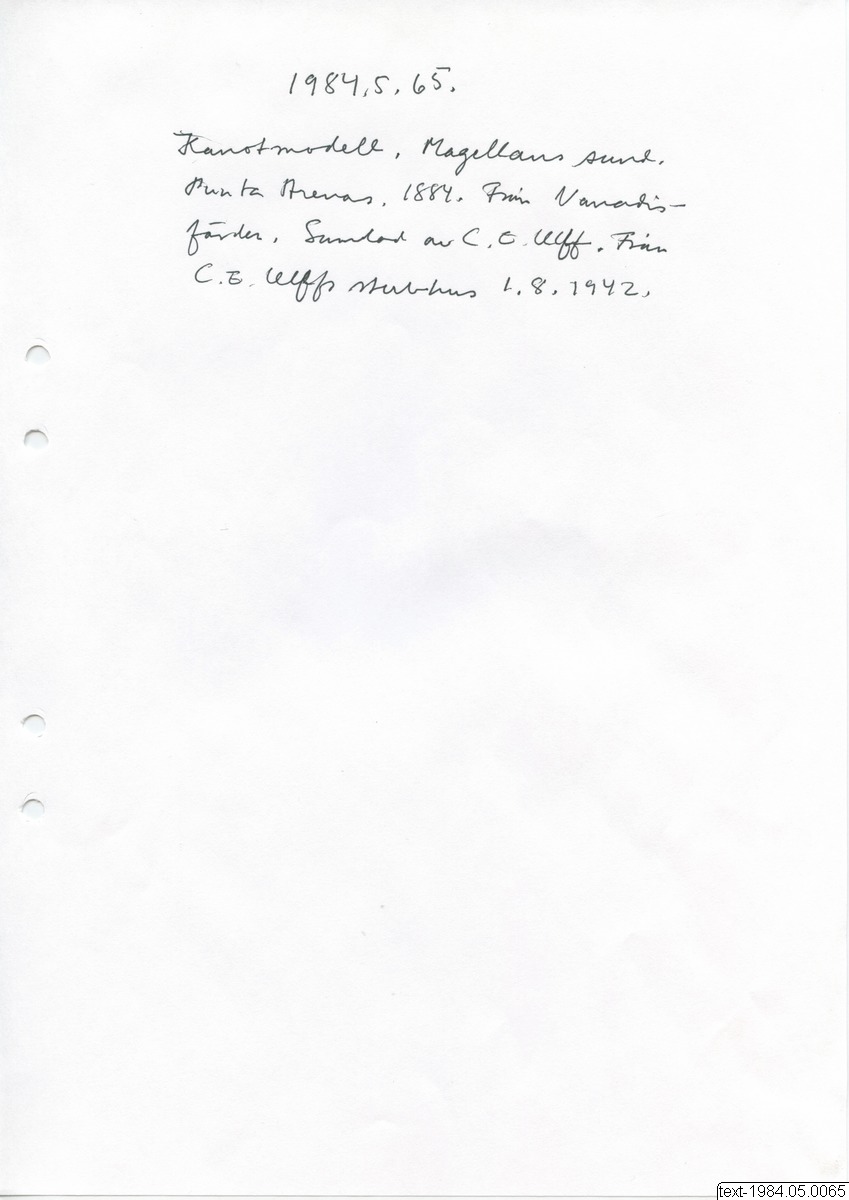 1984.5.65.
Kanotmodell, Magellans sund.
Punta Arenas, 1884. Från Vanadis-
färden. Samlad av C.E. Ulff. Från
C.E. Ulffs sterbhus 1.8.1942.
text-1984.05.0065